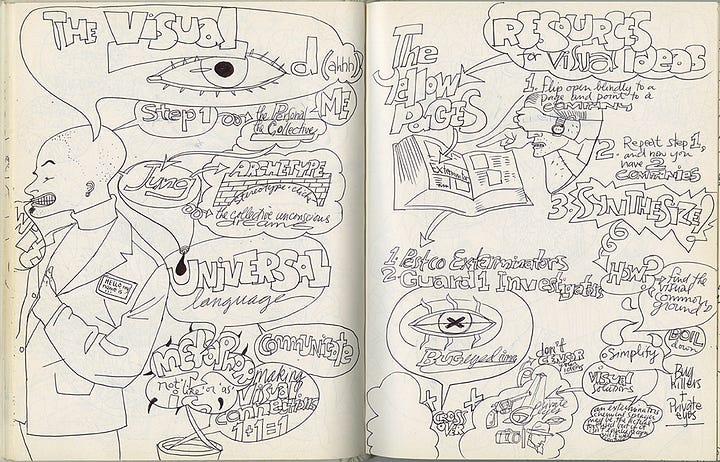 THE VISUAL
d(ahhh)
ME
Step 1
the Personal
the Collective
Jung
ARCHETYPE
stereotype · cliche
the collective unconscious
DREAMS
UNIVERSAL
language
HELLO my
name is
Communicate
metaphor
not "like" or "as"
making
Visual
connections
1+1=1
The
Yellow
PAGES
RESOURCES
for Visual Ideas
1. Flip open blindly to a
page and point to a
COMPANY
Exterminator
2. Repeat step 1,
and now you
have 2
COMPANIES
3. SYNTHESIZE!
1. Pestco Exterminators
2. Guard 1 Investigators
HOW?
find the
visual
common
ground
BOIL
down
Simplify
Bug
Killers
+
Private
eyes
Visual
solutions
don't
censor
ideas
Private
eyes
CROSS
OVER